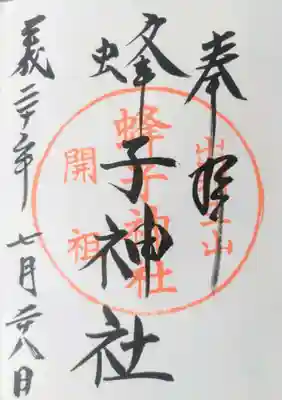 奉拝
出羽三山
蜂子神社
蜂子神社
開祖
年七月廿八日